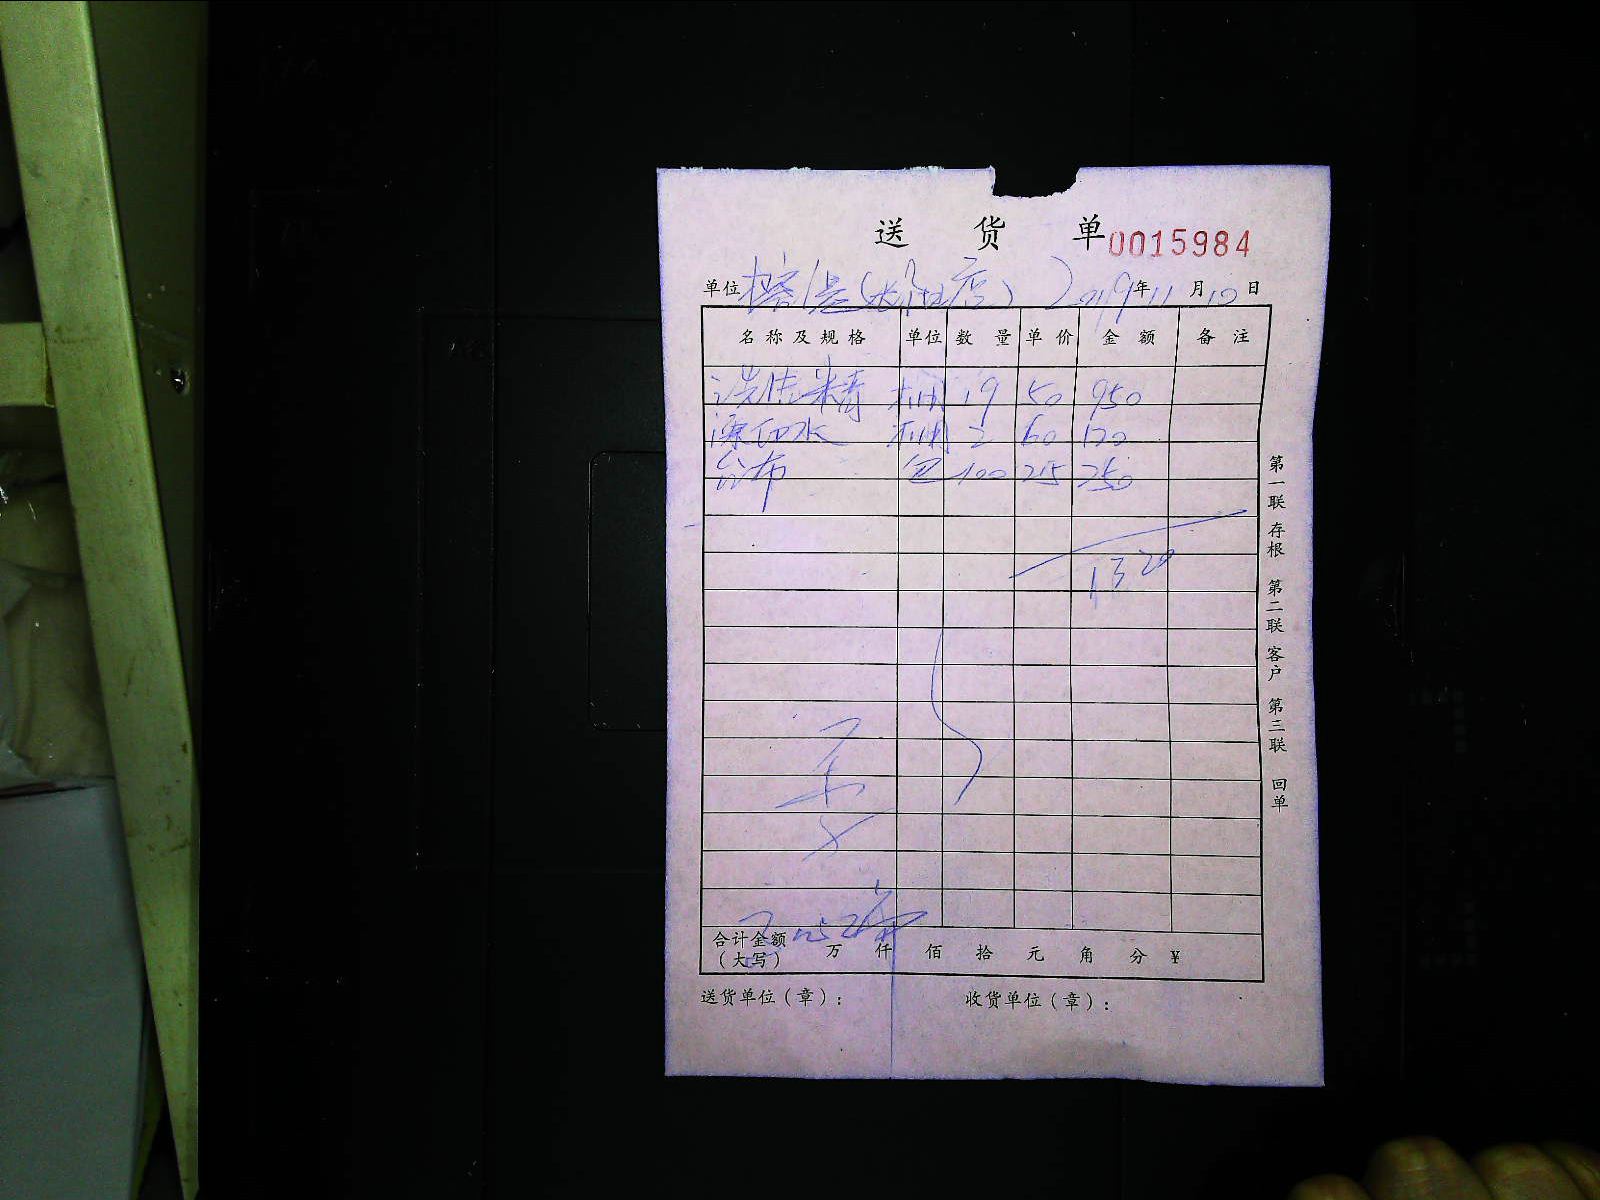 送 货 单 0015984
单位 2019年11月10日
名称及规格 单位 数量 单价 金额 备注
洗洁精 桶 19 50 950
水 桶 2 60 120
布 包 100 25 250
1320
合计金额（大写） 万 仟 佰 拾 元 角 分 ¥
送货单位（章）： 收货单位（章）：
第一联 存根 第二联 客户 第三联 回单